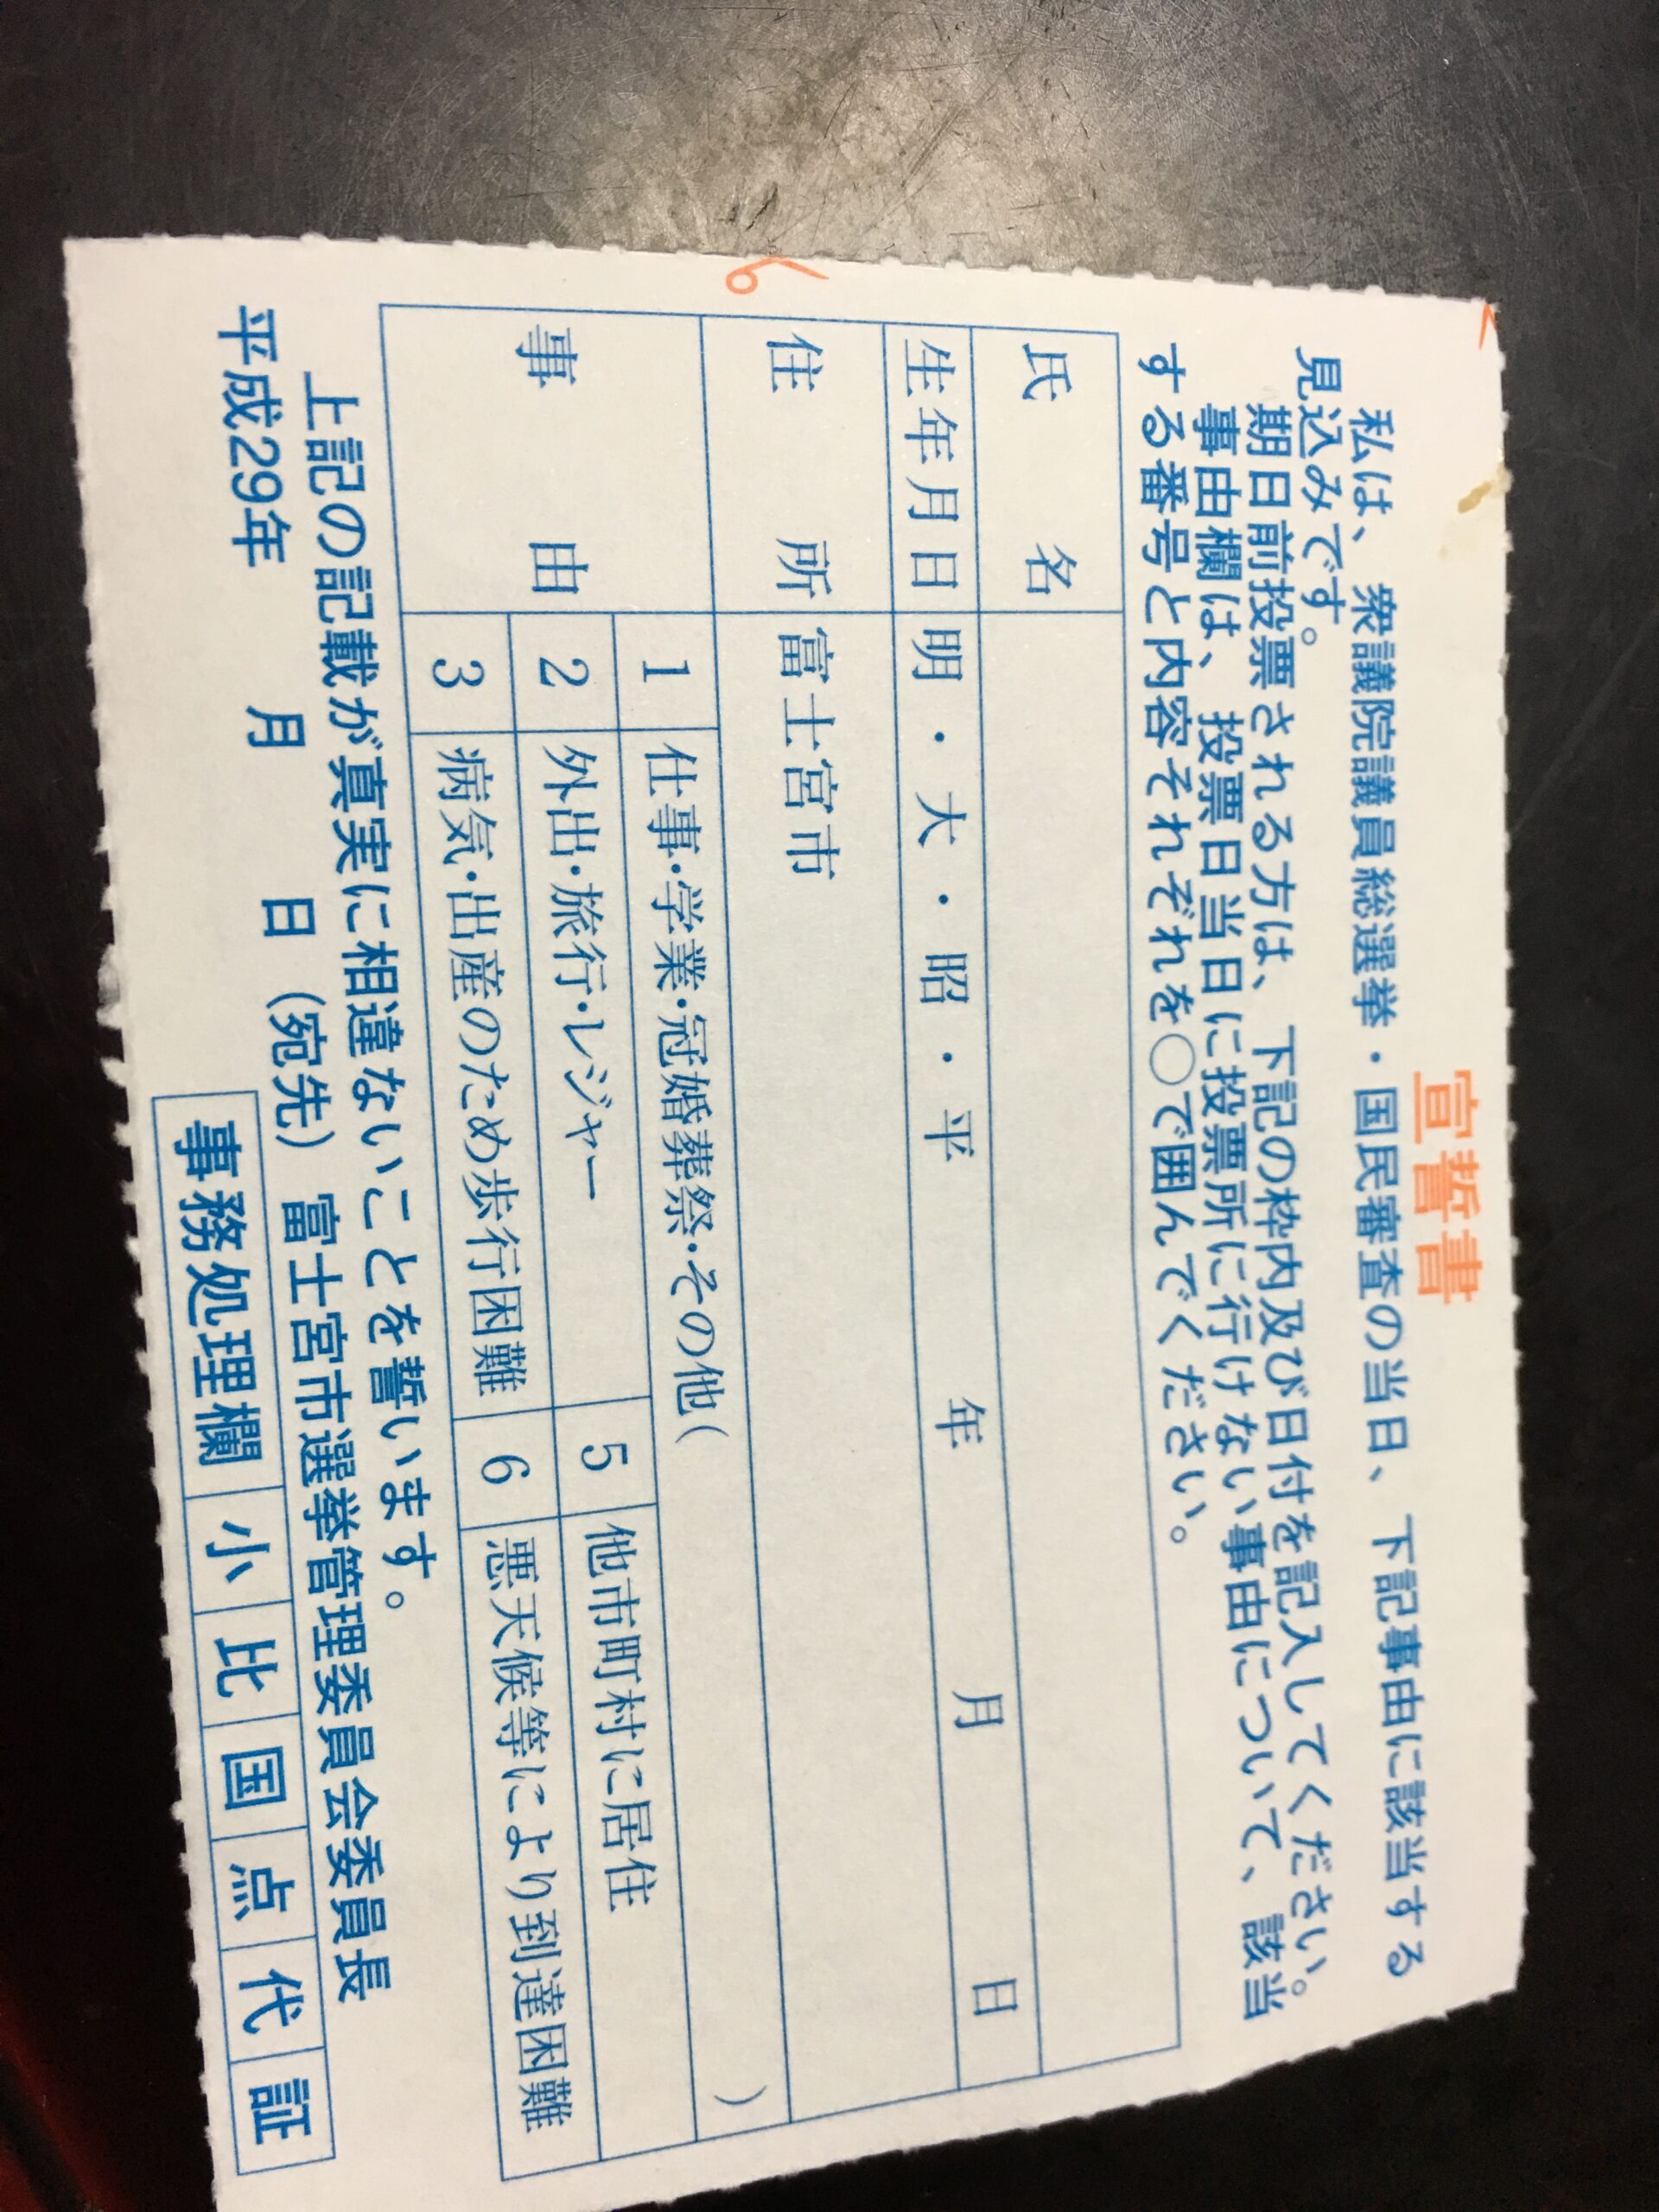 宣誓書
私は、衆議院議員総選挙・国民審査の当日、下記事由に該当する
見込みです。
期日前投票される方は、下記の枠内及び日付を記入してください。
事由欄は、投票日当日に投票所に行けない事由について、該当
する番号と内容それぞれを○で囲んでください。
氏名
生年月日 明・大・昭・平 年 月 日
住所 富士宮市
事由
1 仕事・学業・冠婚葬祭・その他( )
2 外出・旅行・レジャー 5 他市町村に居住
3 病気・出産のため歩行困難 6 悪天候等により到達困難
上記の記載が真実に相違ないことを誓います。
平成29年 月 日 (宛先) 富士宮市選挙管理委員会委員長
事務処理欄 小 比 国 点 代 証